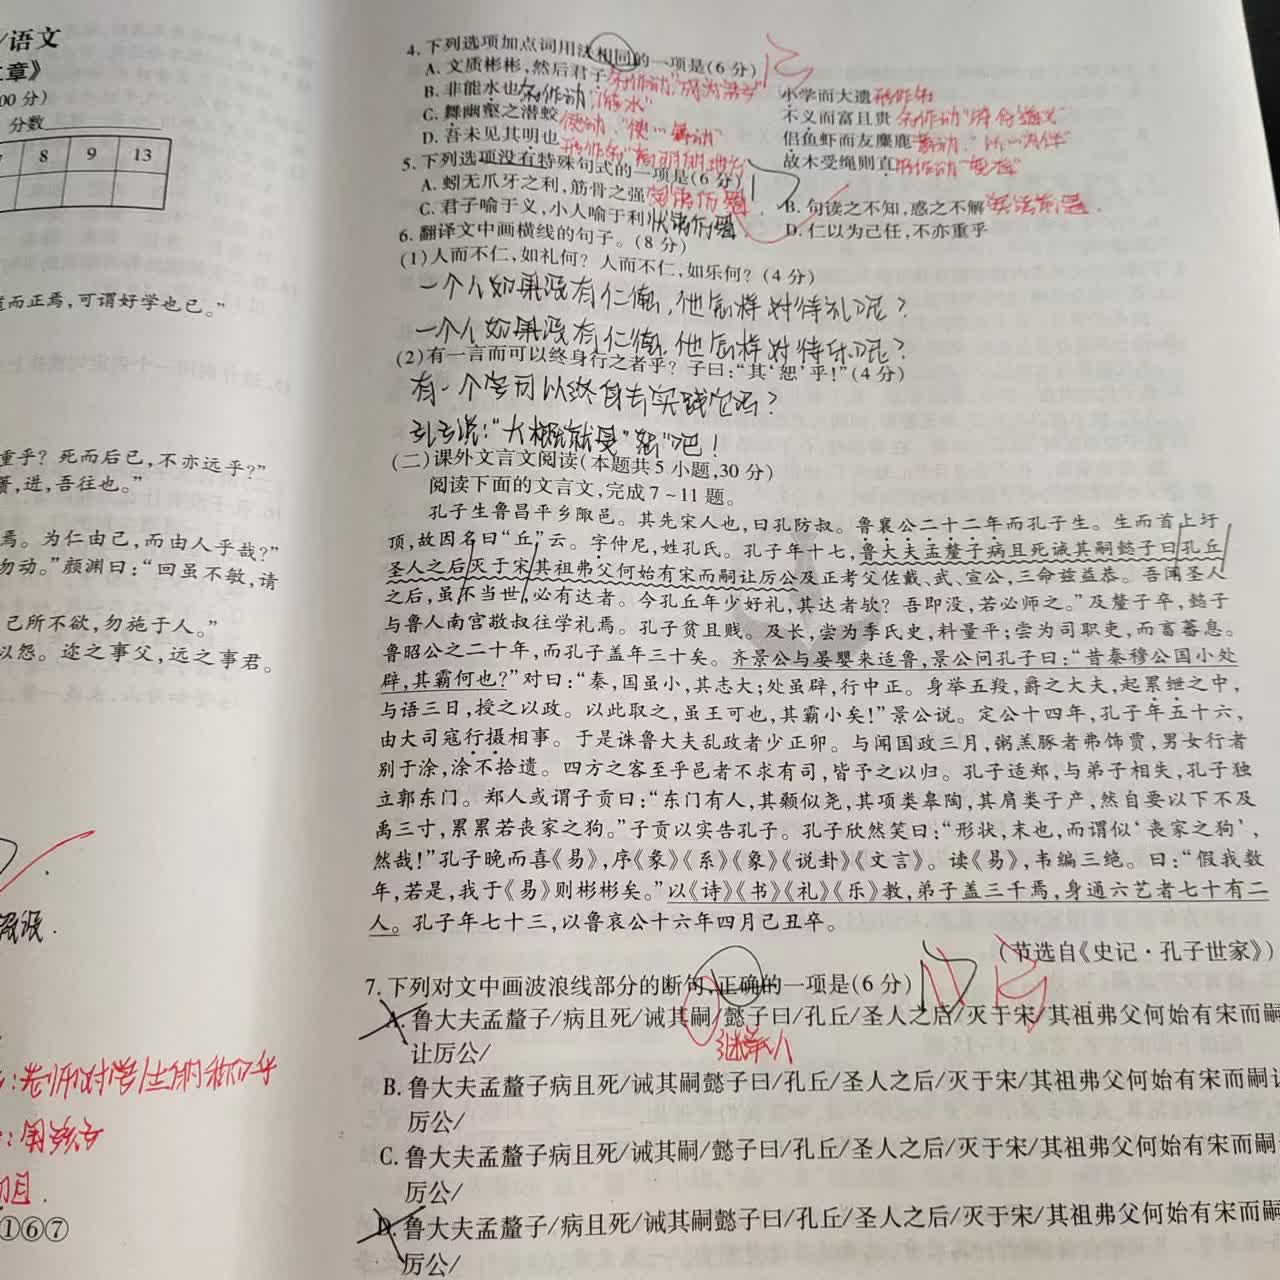 /语文
文章》
00分)
分数
8 9 13
道而正焉,可谓好学也已。”
重乎?死而后已,不亦远乎?”
篑,进,吾往也。”
焉。为仁由己,而由人乎哉?”
勿动。”颜渊曰:“回虽不敏,请
己所不欲,勿施于人。”
以怨。迩之事父,远之事君。
①⑥⑦
4.下列选项加点词用法相同的一项是(6分)
A.文质彬彬,然后君子 名作动“成为君子” 小学而大遗 形作名
B.非能水也 名作动“游水” 不义而富且贵 名作动“符合道义”
C.舞幽壑之潜蛟 使动,“使…舞动” 侣鱼虾而友麋鹿 意动,“以…为伴”
D.吾未见其明也 故木受绳则直
5.下列选项没有特殊句式的一项是(6分) D
A.蚓无爪牙之利,筋骨之强 定语后置 B.句读之不知,惑之不解 宾语前置.
C.君子喻于义,小人喻于利 状语后置 D.仁以为己任,不亦重乎
6.翻译文中画横线的句子。(8分)
(1)人而不仁,如礼何?人而不仁,如乐何?(4分)
一个人如果没有仁德,他怎样对待礼呢?
一个人如果没有仁德,他怎样对待乐呢?
(2)有一言而可以终身行之者乎?子曰:“其‘恕’乎!”(4分)
有一个字可以终身去实践它吗?
孔子说:“大概就是“恕”吧!
(二)课外文言文阅读(本题共5小题,30分)
阅读下面的文言文,完成7~11题。
孔子生鲁昌平乡陬邑。其先宋人也,曰孔防叔。鲁襄公二十二年而孔子生。生而首上圩
顶,故因名曰“丘”云。字仲尼,姓孔氏。孔子年十七,鲁大夫孟釐子病且死诫其嗣懿子曰孔丘
圣人之后灭于宋其祖弗父何始有宋而嗣让厉公及正考父佐戴、武、宣公,三命兹益恭。吾闻圣人
之后,虽不当世,必有达者。今孔丘年少好礼,其达者欤?吾即没,若必师之。”及釐子卒,懿子
与鲁人南宫敬叔往学礼焉。孔子贫且贱。及长,尝为季氏史,料量平;尝为司职吏,而畜蕃息。
鲁昭公之二十年,而孔子盖年三十矣。齐景公与晏婴来适鲁,景公问孔子曰:“昔秦穆公国小处
辟,其霸何也?”对曰:“秦,国虽小,其志大;处虽辟,行中正。身举五羖,爵之大夫,起累绁之中,
与语三日,授之以政。以此取之,虽王可也,其霸小矣!”景公说。定公十四年,孔子年五十六,
由大司寇行摄相事。于是诛鲁大夫乱政者少正卯。与闻国政三月,粥羔豚者弗饰贾,男女行者
别于涂,涂不拾遗。四方之客至乎邑者不求有司,皆予之以归。孔子适郑,与弟子相失,孔子独
立郭东门。郑人或谓子贡曰:“东门有人,其颡似尧,其项类皋陶,其肩类子产,然自要以下不及
禹三寸,累累若丧家之狗。”子贡以实告孔子。孔子欣然笑曰:“形状,末也,而谓似‘丧家之狗’,
然哉!”孔子晚而喜《易》,序《彖》《系》《象》《说卦》《文言》。读《易》,韦编三绝。曰:“假我数
年,若是,我于《易》则彬彬矣。”以《诗》《书》《礼》《乐》教,弟子盖三千焉,身通六艺者七十有二
人。孔子年七十三,以鲁哀公十六年四月己丑卒。
(节选自《史记·孔子世家》)
7.下列对文中画波浪线部分的断句,正确的一项是(6分)
A.鲁大夫孟釐子/病且死/诫其嗣/懿子曰/孔丘/圣人之后/灭于宋/其祖弗父何始有宋而嗣
让厉公/ 继承人
B.鲁大夫孟釐子病且死/诫其嗣懿子曰/孔丘/圣人之后/灭于宋/其祖弗父何始有宋而嗣让
厉公/
C.鲁大夫孟釐子病且死/诫其嗣/懿子曰/孔丘/圣人之后/灭于宋/其祖弗父何始有宋而嗣
厉公/
D.鲁大夫孟釐子/病且死/诫其嗣懿子曰/孔丘/圣人之后/灭于宋/其祖弗父何始有宋而嗣
厉公/